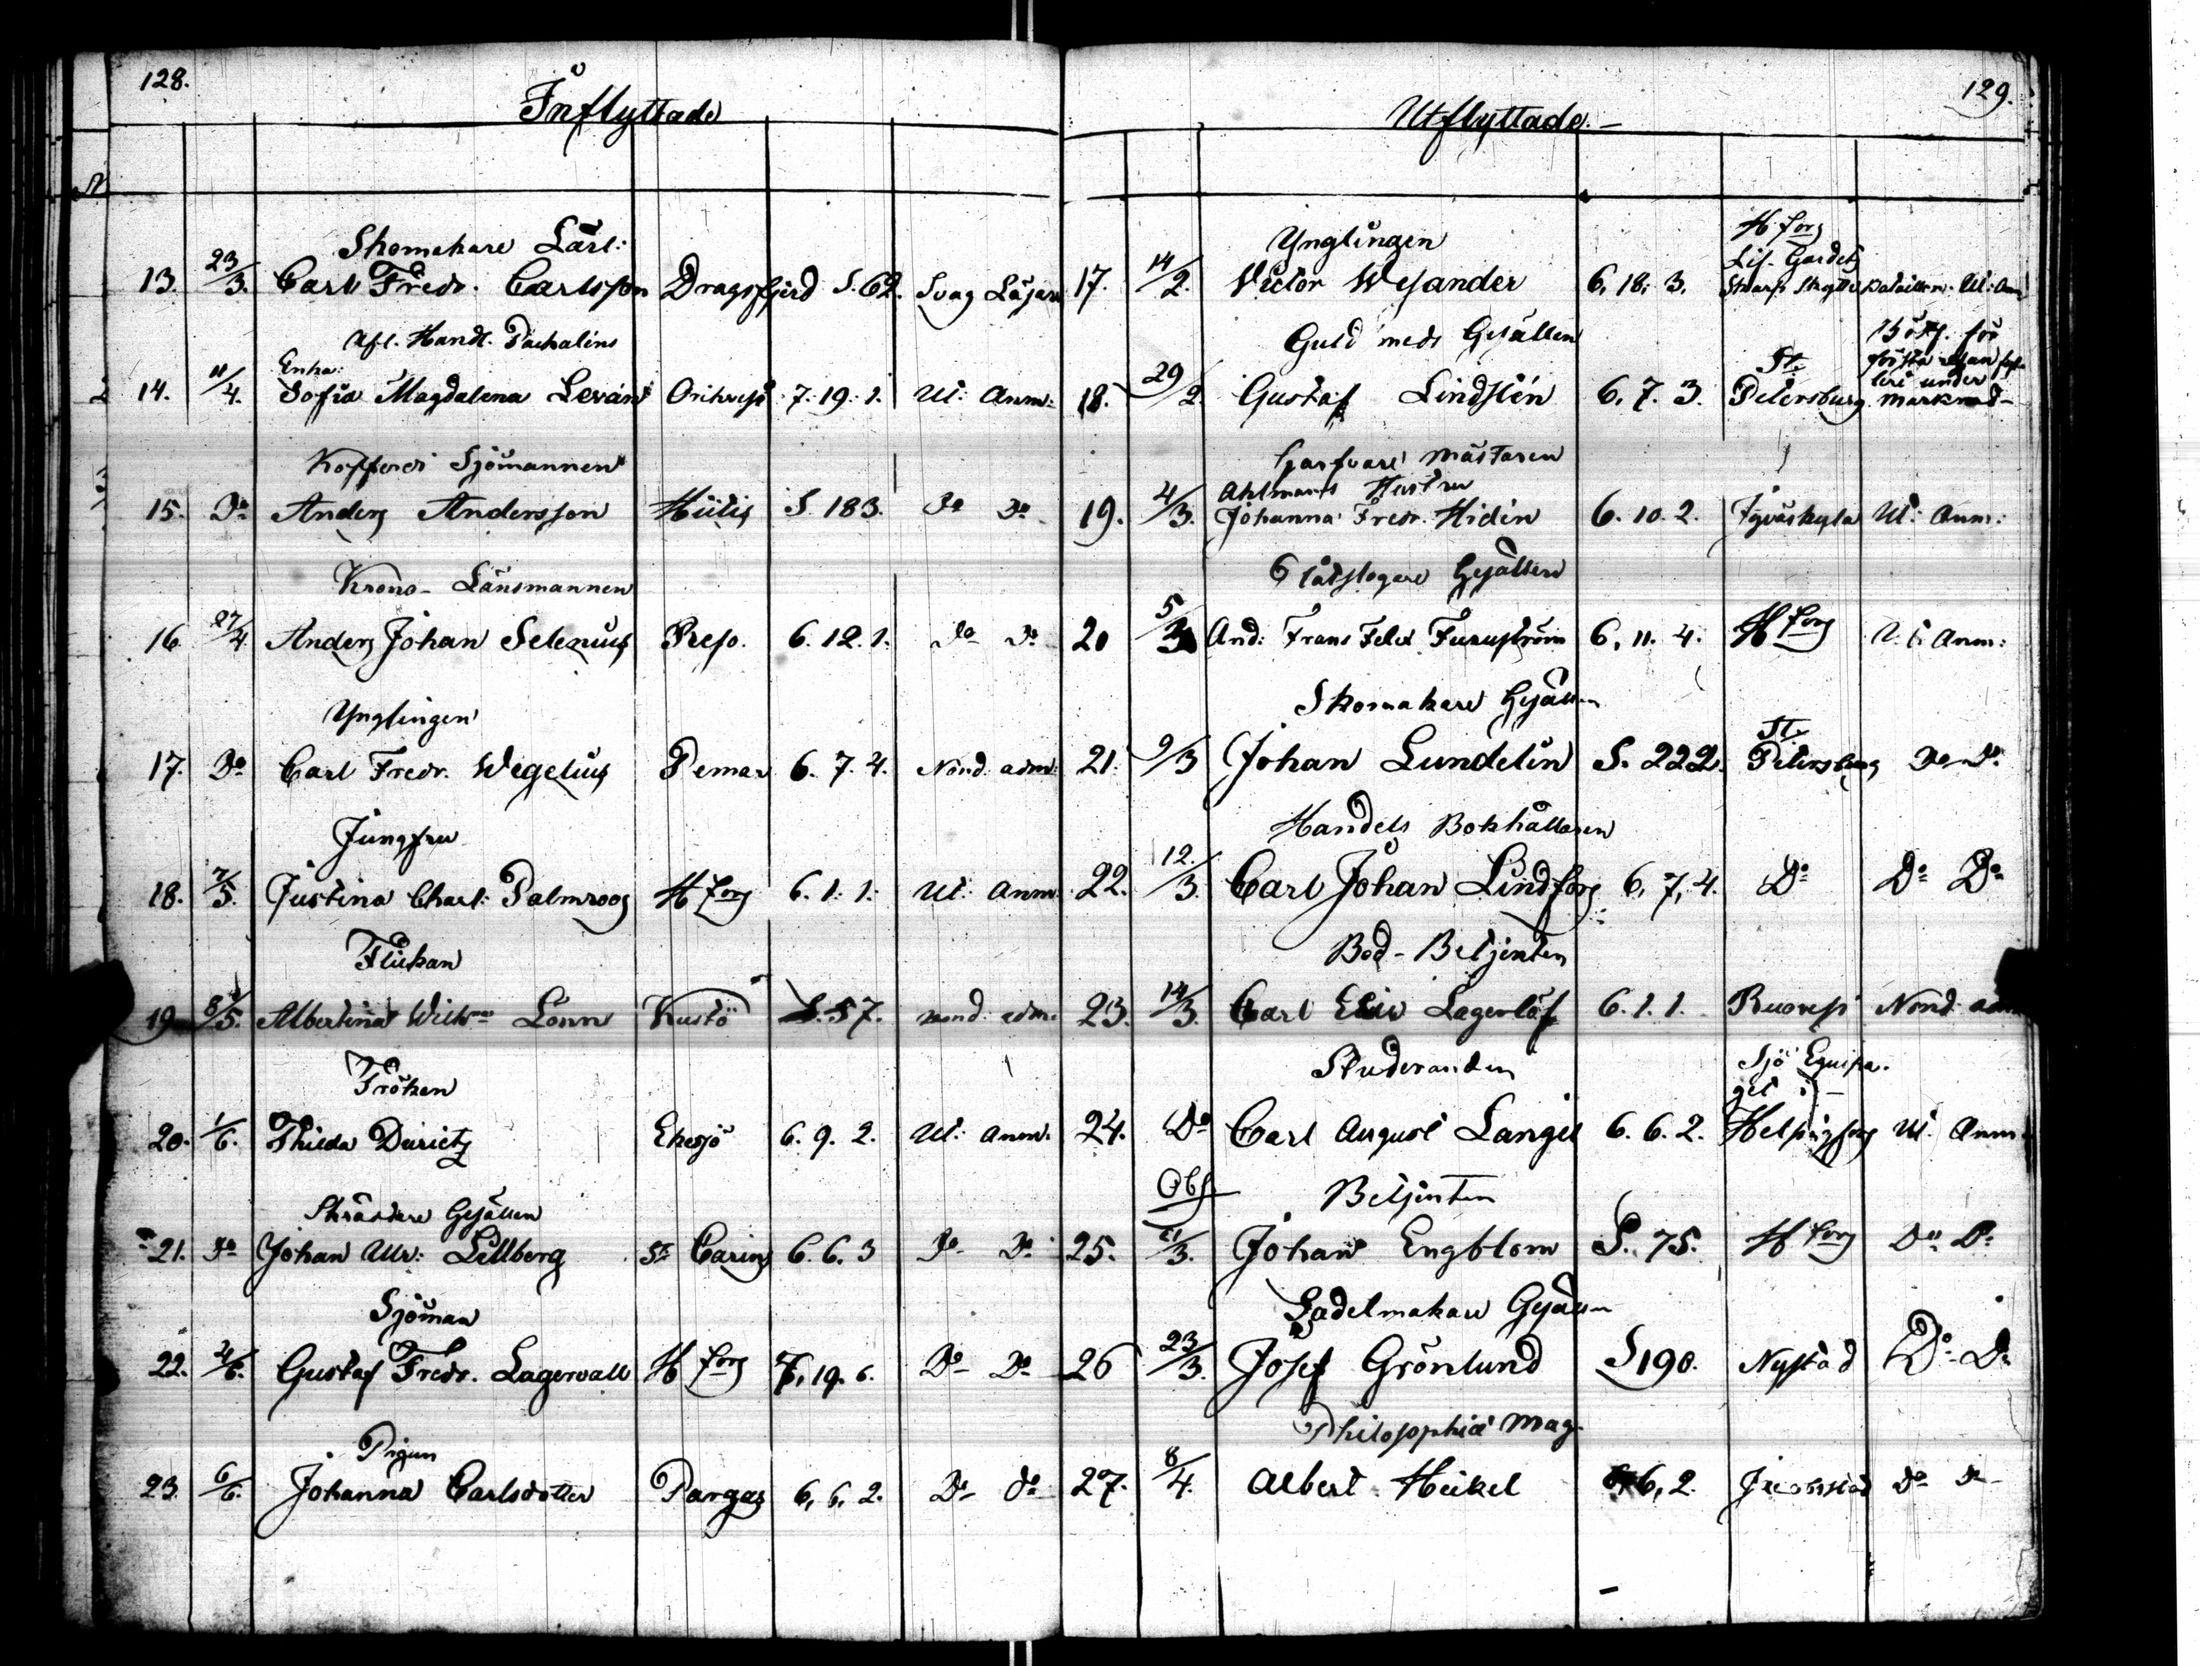 128.
Inflyttade
Skomakare Lärl:
13. 23/3. Carl Fredr. Carlsson Dragsfjerd S. 62. Svag Läsare
Afl. Handl. Pachalins
Enka:
14. 11/4. Sofia Magdalena Leván Orihvesi 7. 19. 1. Ut: Anm:
Kofferdi Sjömannen
15. Do Anders Andersson Hiitis S. 183. Do Do
Krono-Länsmannen
16 27/4 Anders Johan Selenius 6. 12. 1. Do Do
Ynglingen
17. Do Carl Fredr. Wegelius Pemar 6. 7. 4. Nond. adm:
Jungfru
18. 7/5. Justina Charl: Palmroos H fors 6. 1. 1. Ut: Anm:
Flickan
19 8/5. Albertina Wilh:na Lönn Kustö S. 57. nond. adm.
Fröken
20. 1/6. Thilda Durietz Ekesjö 6. 9. 2. Ut: Anm.
Skräddare Gesällen
21. Do Johan Ulr: Lillberg St Carins 6. 6. 3 Do Do
Sjöman
22. 4/6. Gustaf Fredr. Lagervall H fors 7, 19. 6. Do Do
Pigan
23. 6/6. Johanna Carlsdotter Pargas 6, 6, 2. Do do
129.
Utflyttade.
H.fors
Ynglingen Lif. Gardets
17. 14/2. Victor Wesander 6, 18, 3. Skarp Skytte Bataillon. Ut: Anm
Guld smeds Gesällen första resan
18. 29/2. Gustaf Lindstén 6, 7. 3. St. Petersburg under marknad-
Garfvare Mästaren
Ahlmans Hustru
19. 4/3. Johanna Fredr. Hidén 6. 10. 2. Jyväskyla Ut: Anm:
Plåtslagare Gesällen
20 5/3 And: Frans Felix Furuström 6, 11. 4. H fors Ut: Anm:
Skomakare Gesällen
21. 9/3 Johan Lundelin S. 222. St. Petersburg Do Do
Handels Bokhållaren
22. 12/3. Carl Johan Lindfors 6, 7, 4. Do Do Do
Bod-Betjenten
23. 14/3. Carl Lagerlöf 6. 1. 1. Ruovesi Nond. adm
Studeranden Sjö Equipa-
get i
24. Do Carl August Langel 6. 6. 2. Helsingfors Ut. Anm
Obs. Betjenten
25. 21/3. Johan Engblom S. 75. H fors Do Do
Sadelmakare Gesällen
26 23/3. Josef Grönlund S 190. Nystad Do Do
Philosophiæ Mag.
27. 8/4. Albert Heikel 6, 2. Jacobstad Do Do